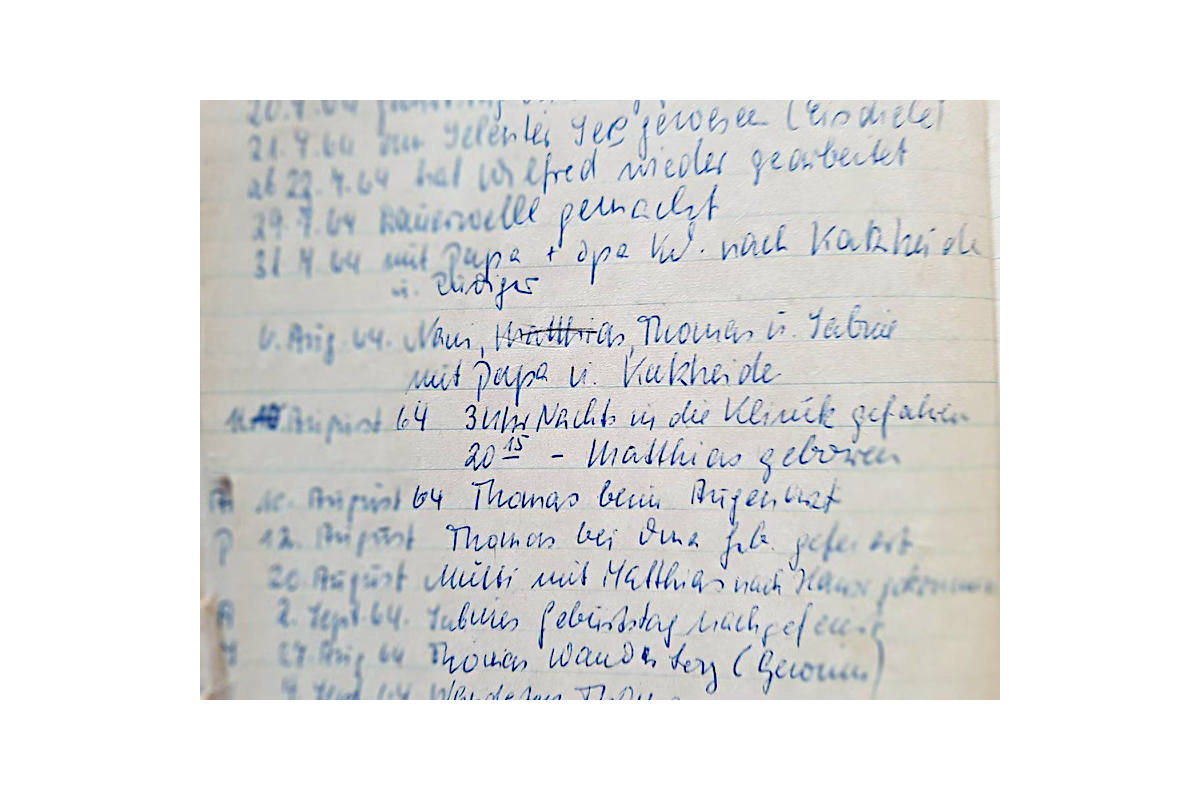 20.7.64
21.7.64 zum Selenter See gewesen (Eisdiele)
ab 22.7.64 hat Wilfred wieder gearbeitet
29.7.64 Dauerwelle gemacht
31.7.64 mit Papa + Opa Kl. nach Katzheide
u. Rüdiger
6. Aug. 64. Nani, Matthias, Thomas u. Sabine
mit Papa n. Katzheide
11. August 64 3 Uhr Nachts in die Klinik gefahren
20 15 - Matthias geboren
10. August 64 Thomas beim Augenarzt
12. August Thomas bei Oma geb. gefeiert
20. August Mutti mit Matthias nach Hause gekommen
2. Sept. 64. Sabines Geburtstag nachgefeiert
27. Aug 64 Thomas Wandertag
Sept 64